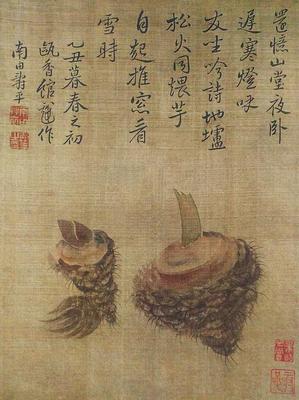 最憶山堂夜卧
遲寒燈呼
友坐吟詩地爐
松火同煨芋
自起推窓看
雪時
乙丑暮春之初
甌香館作
南田壽平